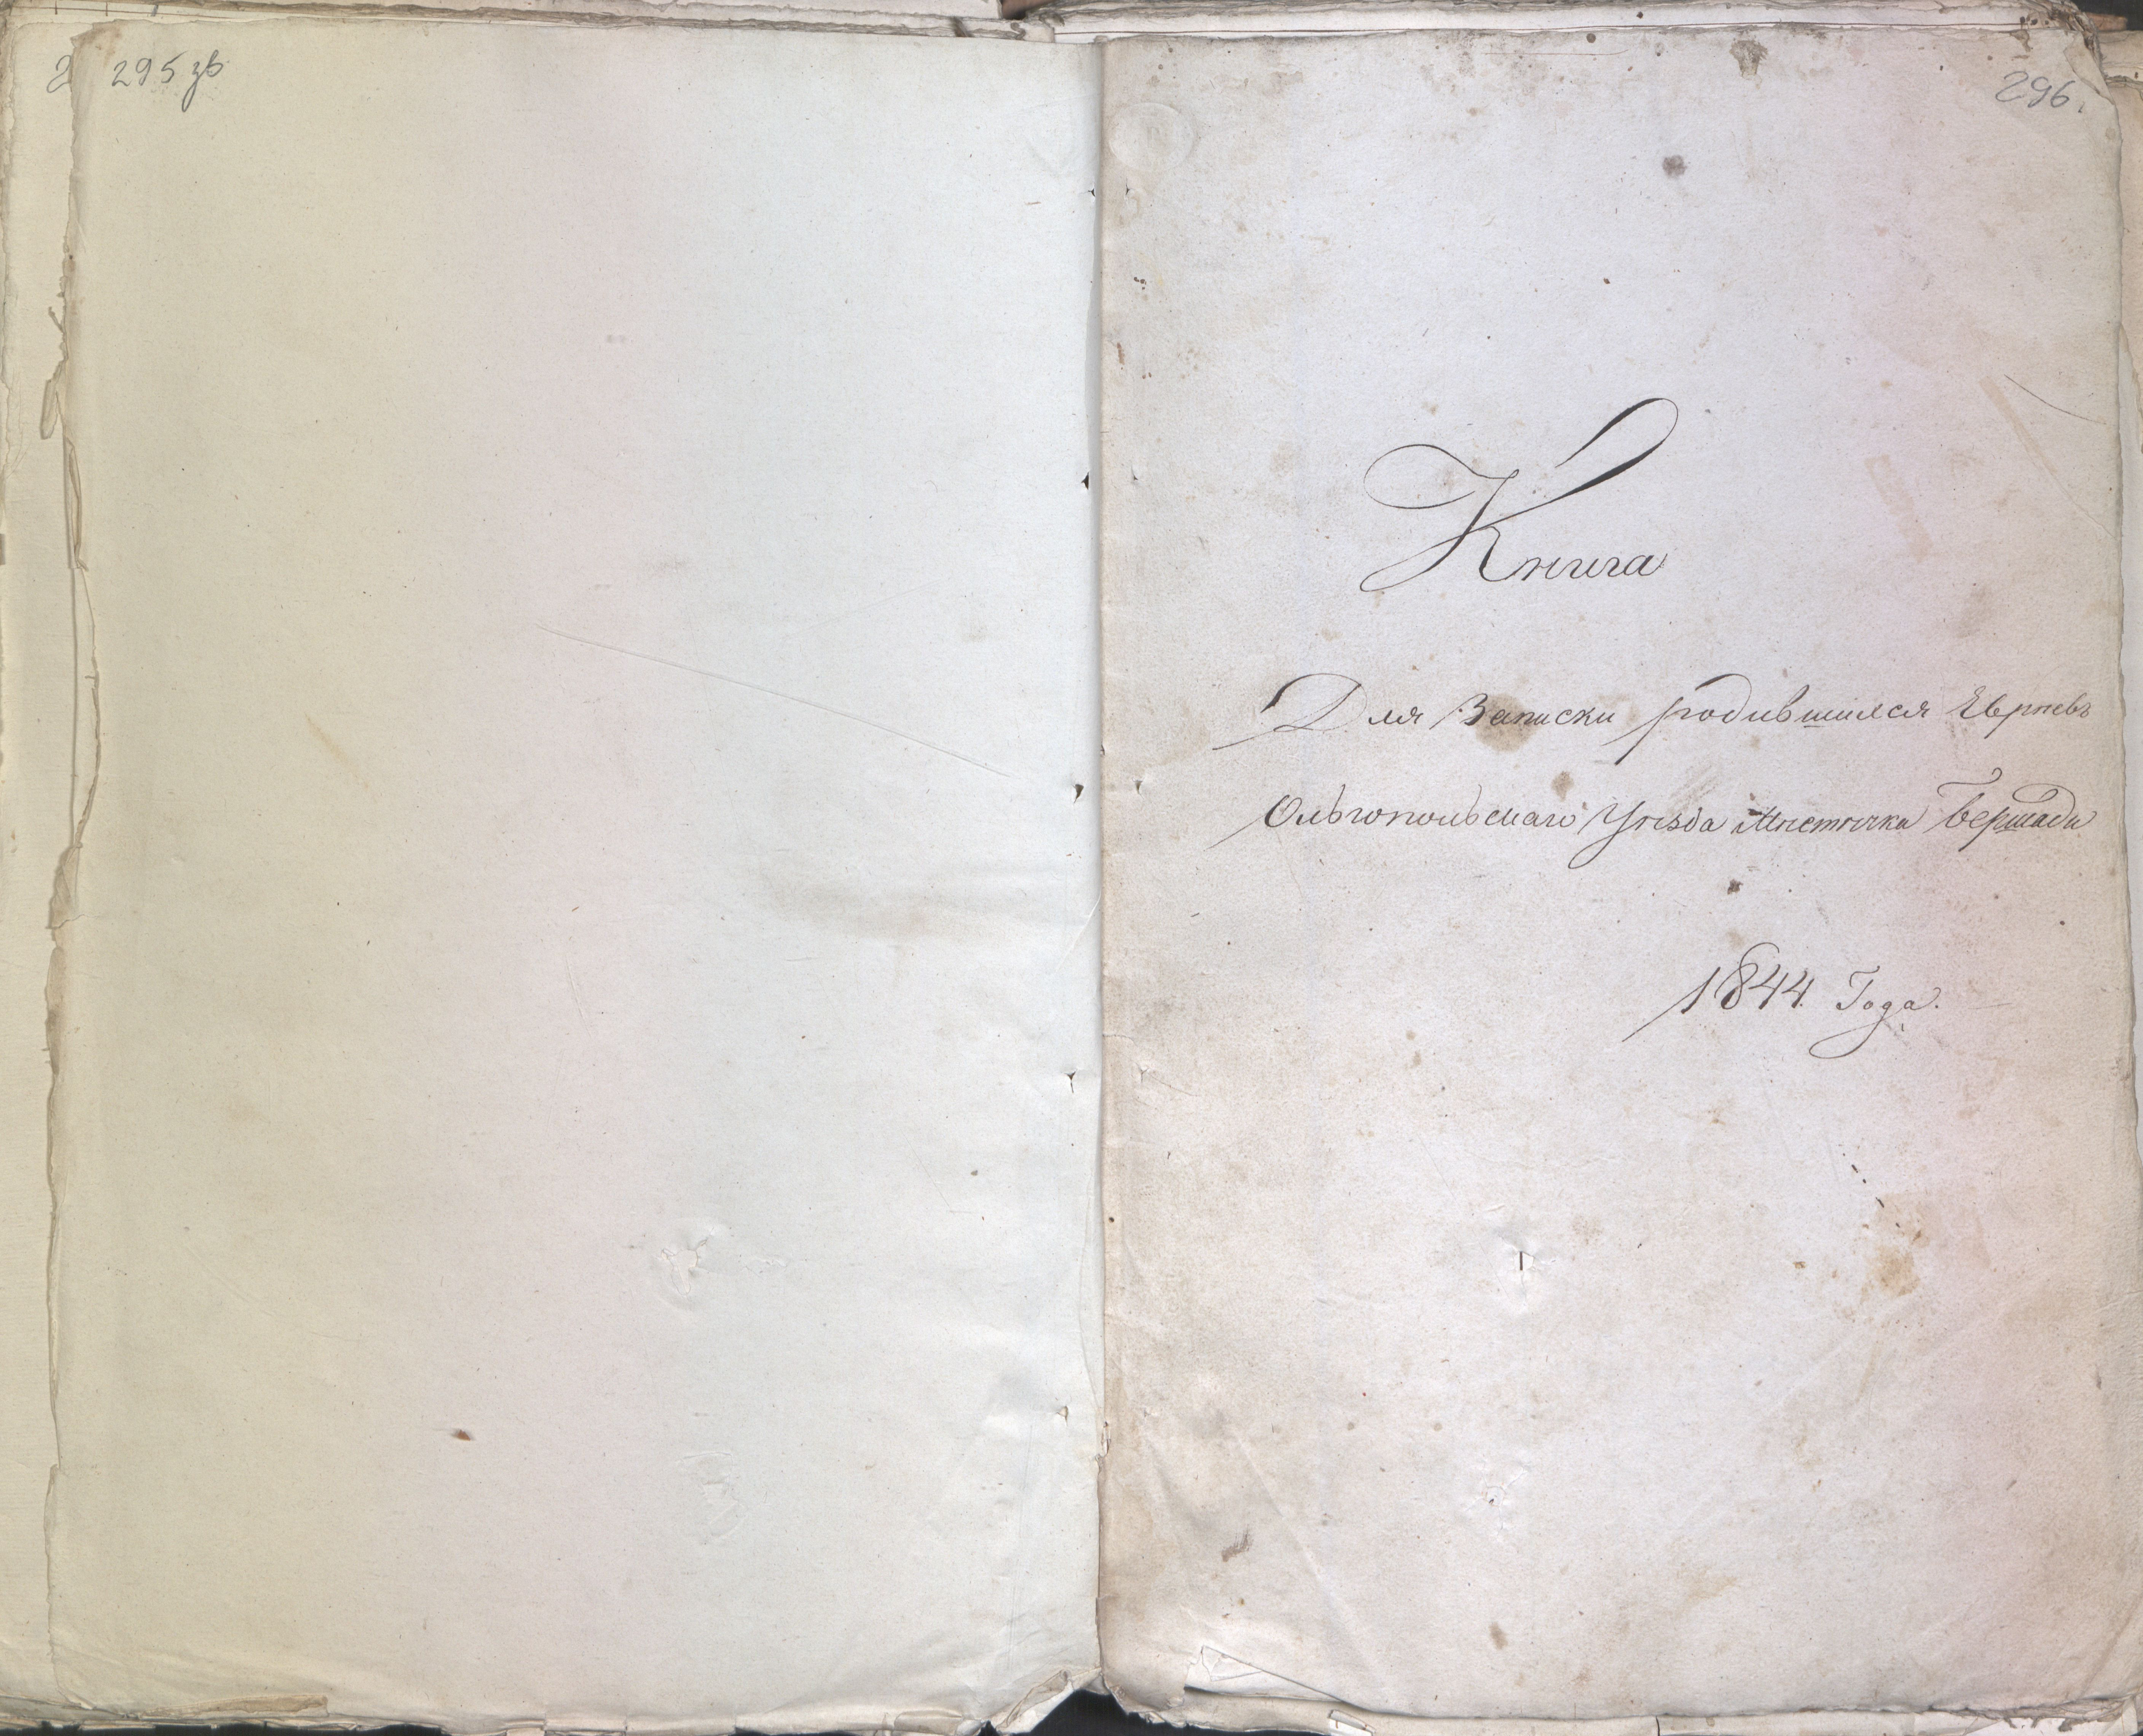 295 зв
296.
Книга
Для Записки родившихся Евреевъ
Ольгопольскаго Уѣзда Мѣстечка Бершади
1844 Года.